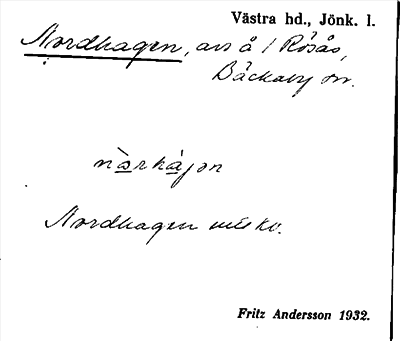 Västra hd., Jönk. l.
Nordhagen, avs å 1 Rösås,
Bäckaby sn.
nòrkájən
Nordhagen
Fritz Andersson 1932.